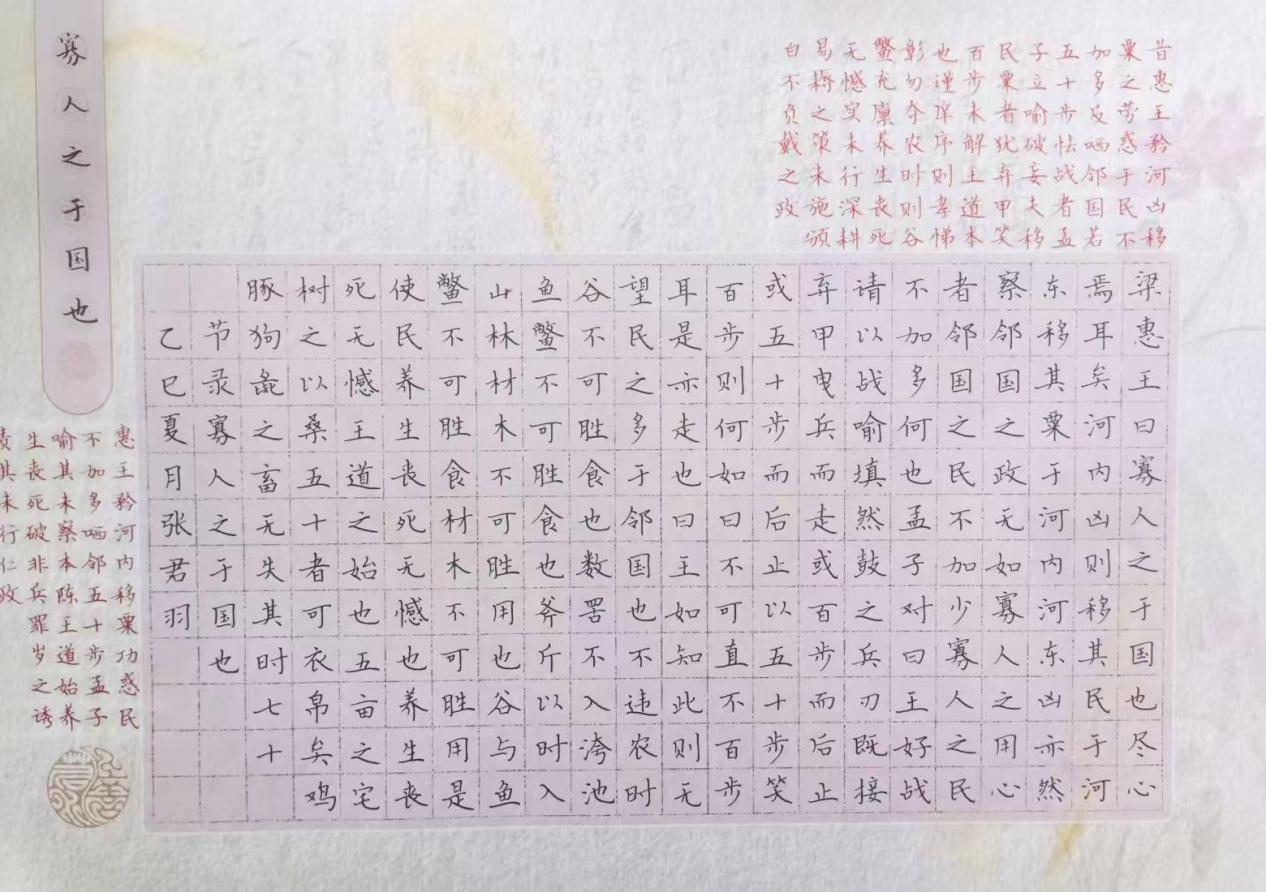 寡人之于国也
昔惠王矜河凶移
粟之劳惑于民不
加多反哂邻国若
五十步怯战者孟
子立喻破妄夫移
民粟者犹弃甲笑
百步未解王道本
也谨庠序则孝悌
彰勿夺农时则谷
鳖充廪养生丧死
无憾实未行深耕
易耨之策未施颁
白不负戴之政
梁惠王曰寡人之于国也尽心
焉耳矣河内凶则移其民于河
东移其粟于河内河东凶亦然
察邻国之政无如寡人之用心
者邻国之民不加少寡人之民
不加多何也孟子对曰王好战
请以战喻填然鼓之兵刃既接
弃甲曳兵而走或百步而后止
或五十步而后止以五十步笑
百步则何如曰不可直不百步
耳是亦走也曰王如知此则无
望民之多于邻国也不违农时
谷不可胜食也数罟不入洿池
鱼鳖不可胜食也斧斤以时入
山林材木不可胜用也谷与鱼
鳖不可胜食材木不可胜用是
使民养生丧死无憾也养生丧
死无憾王道之始也五亩之宅
树之以桑五十者可衣帛矣鸡
豚狗彘之畜无失其时七十
节录寡人之于国也
乙巳夏月张君羽
惠王矜河内移粟功惑民
不加多哂邻五十步孟子
喻其未察本陈王道始养
生丧死破非兵罪岁之诱
责其未行仁政